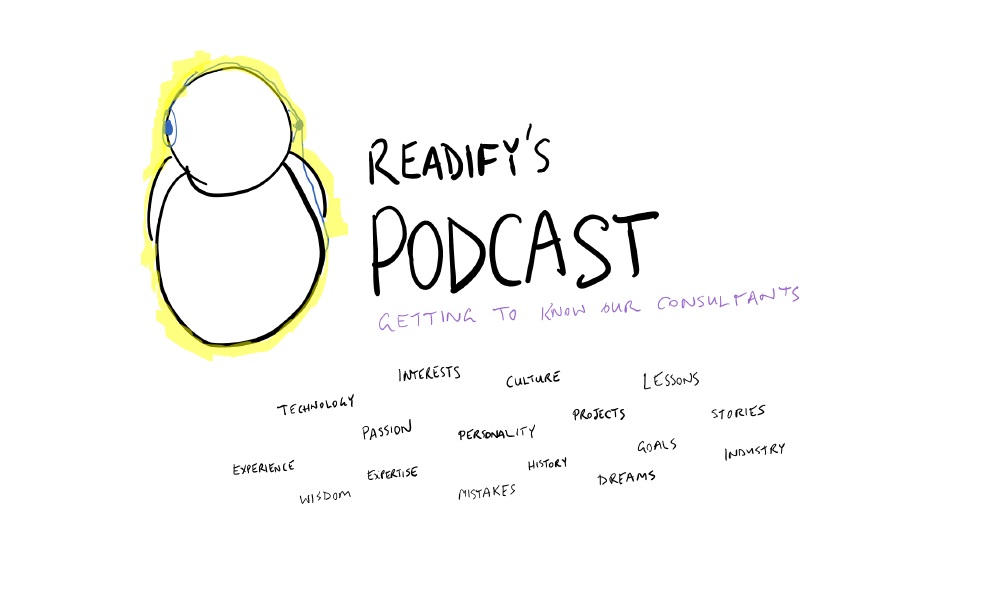 READIFY'S
PODCAST
GETTING TO KNOW OUR CONSULTANTS
INTERESTS
CULTURE
LESSONS
TECHNOLOGY
PASSION
PERSONALITY
PROJECTS
STORIES
GOALS
INDUSTRY
EXPERIENCE
EXPERTISE
HISTORY
DREAMS
WISDOM
MISTAKES